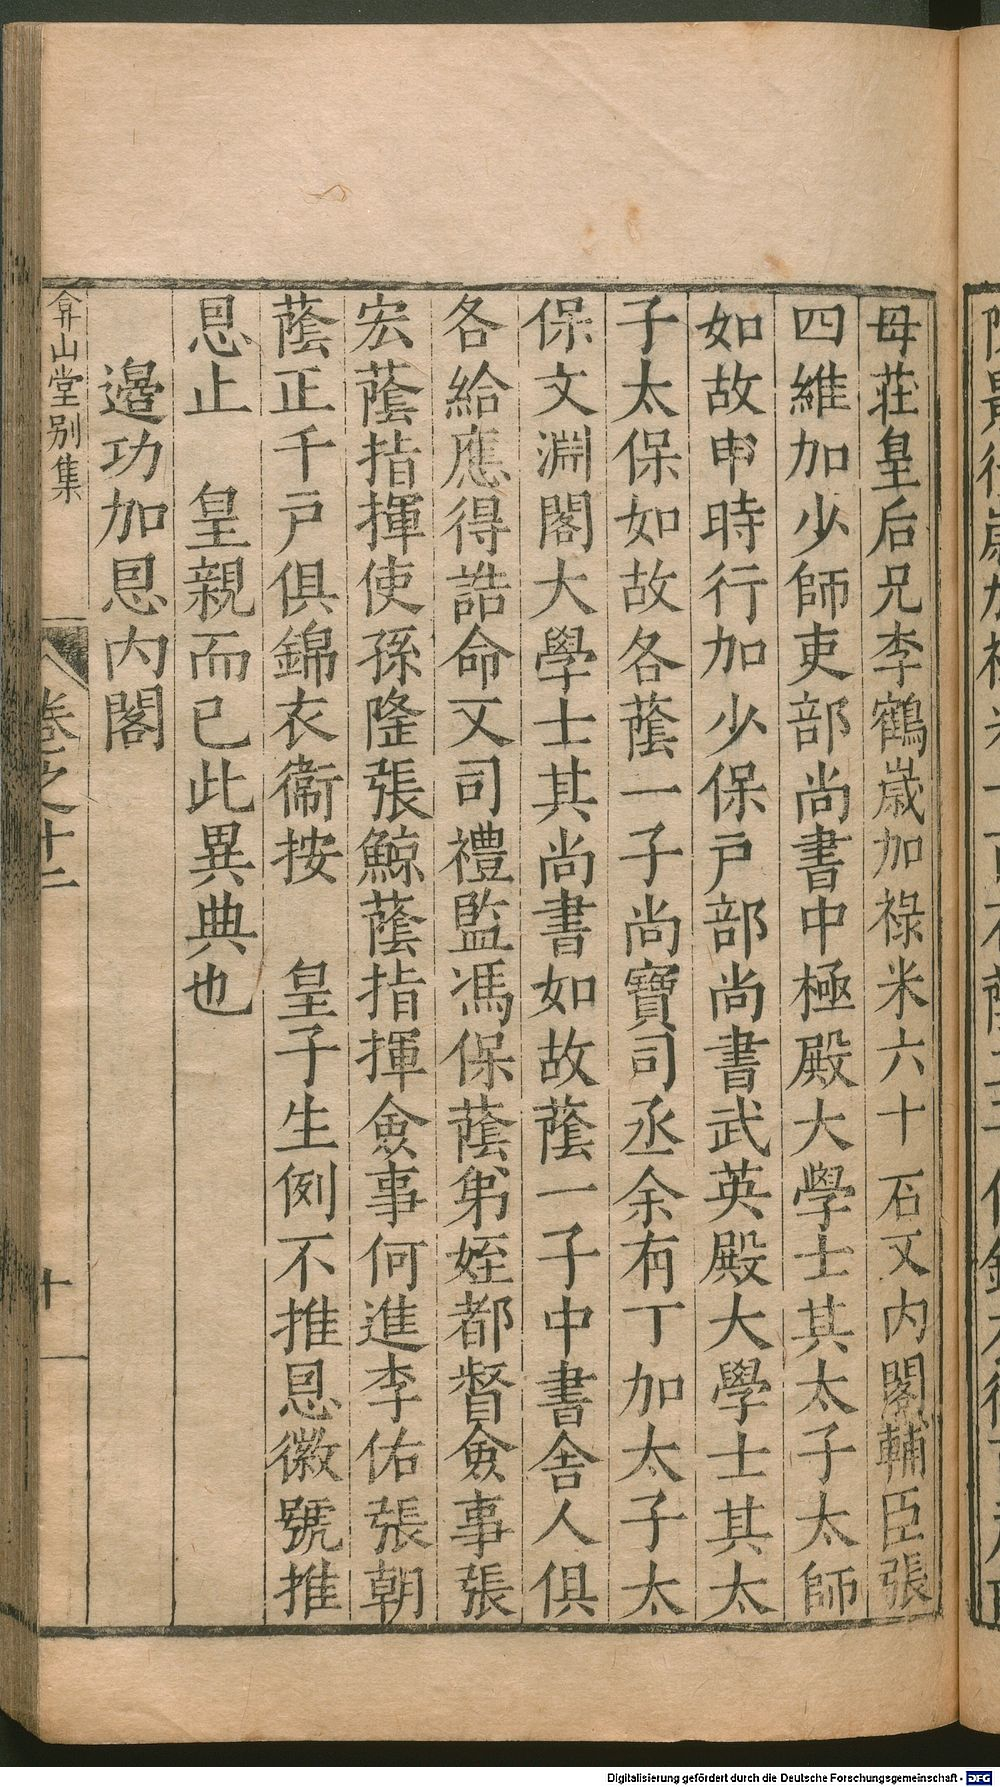 母莊皇后兄李鶴歲加祿米六十石又內閣輔臣張
四維加少師吏部尚書中極殿大學士其太子太師
如故申時行加少保戶部尚書武英殿大學士其太
子太保如故各蔭一子尚寶司丞余有丁加太子太
保文淵閣大學士其尚書如故蔭一子中書舍人俱
各給應得誥命又司禮監馮保蔭弟姪都督僉事張
宏蔭指揮使孫隆張鯨蔭指揮僉事何進李佑張朝
蔭正千戶俱錦衣衞按 皇子生例不推恩徽號推
恩止 皇親而已此異典也
邊功加恩內閣
弇山堂別集
卷之十二
十
Digitalisierung gefördert durch die Deutsche Forschungsgemeinschaft - DFG